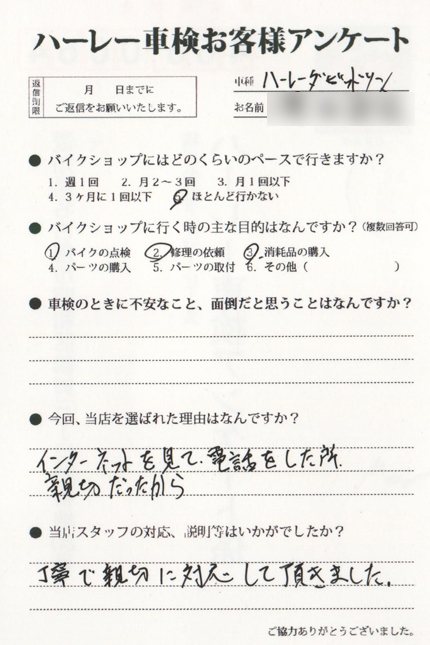 ハーレー車検お客様アンケート
返信期限
月　日までに
ご返信をお願いいたします。
車種 ハーレーダビッドソン
お名前
● バイクショップにはどのくらいのペースで行きますか？
1. 週1回　2. 月2～3回　3. 月1回以下
4. 3ヶ月に1回以下　5. ほとんど行かない
● バイクショップに行く時の主な目的はなんですか？(複数回答可)
1. バイクの点検　2. 修理の依頼　3. 消耗品の購入
4. パーツの購入　5. パーツの取付　6. その他（　　　　　　）
● 車検のときに不安なこと、面倒だと思うことはなんですか？
● 今回、当店を選ばれた理由はなんですか？
インターネットを見て、電話をした所、
親切だったから
● 当店スタッフの対応、説明等はいかがでしたか？
丁寧で親切に対応して頂きました。
ご協力ありがとうございました。